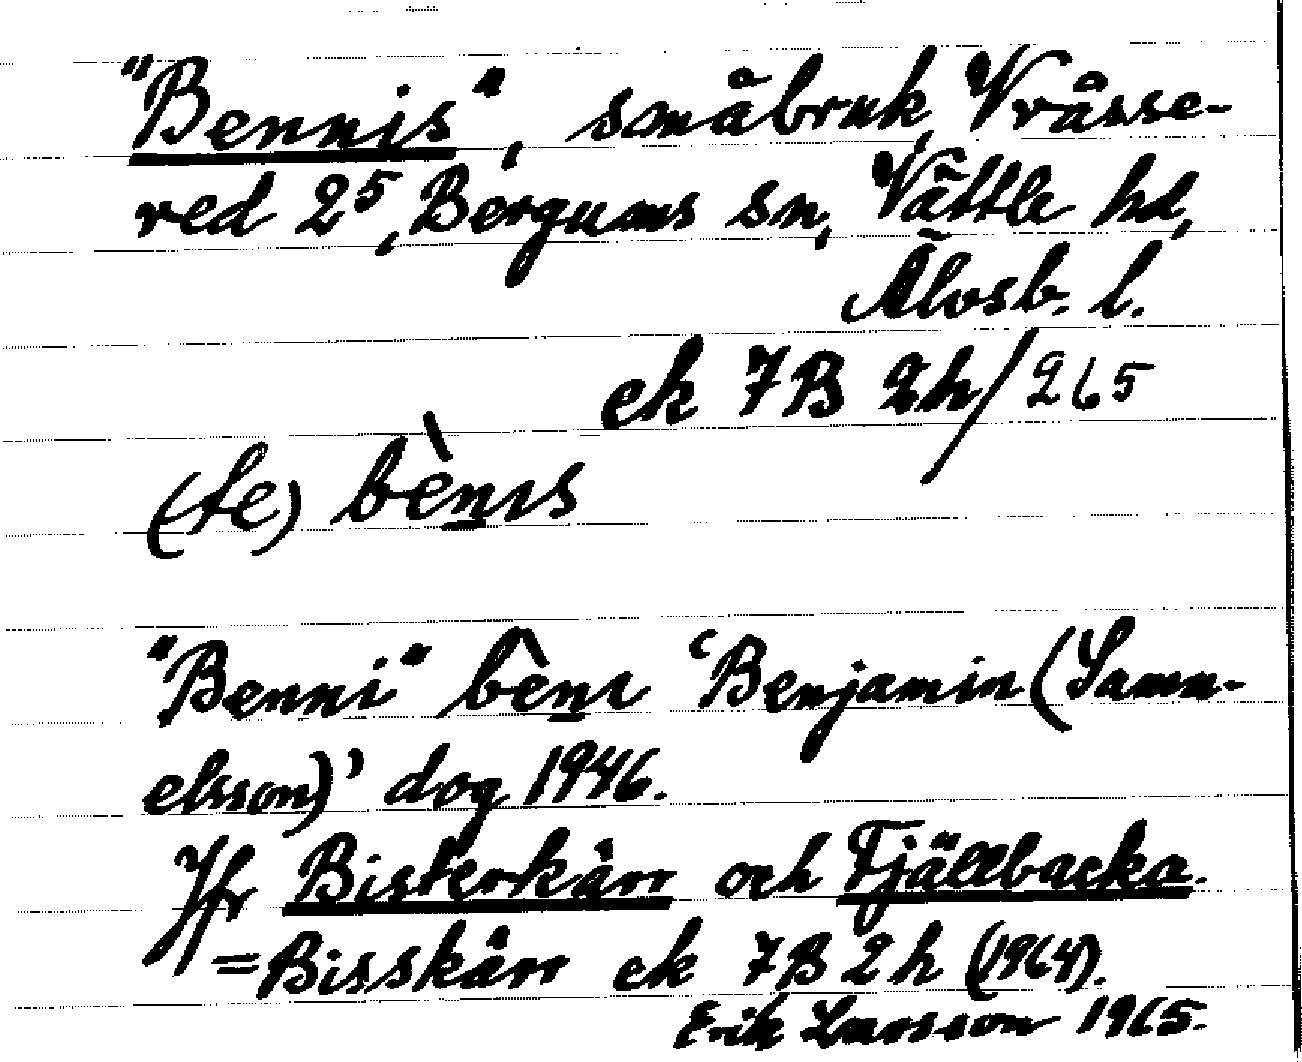 "Bennis", småbruk, Vråsse-
red 2⁵, Bergums sn, Vättle hd,
Älvsb. l.
ek 7B 2h/265
(te) bènıs
"Benni" bènı 'Benjamin (Samu-
elsson)' dog 1946.
Jfr Bisterkärr och Fjällbacka.
=Bisskärr ek 7B 2h (1964).
Erik Larsson 1965.